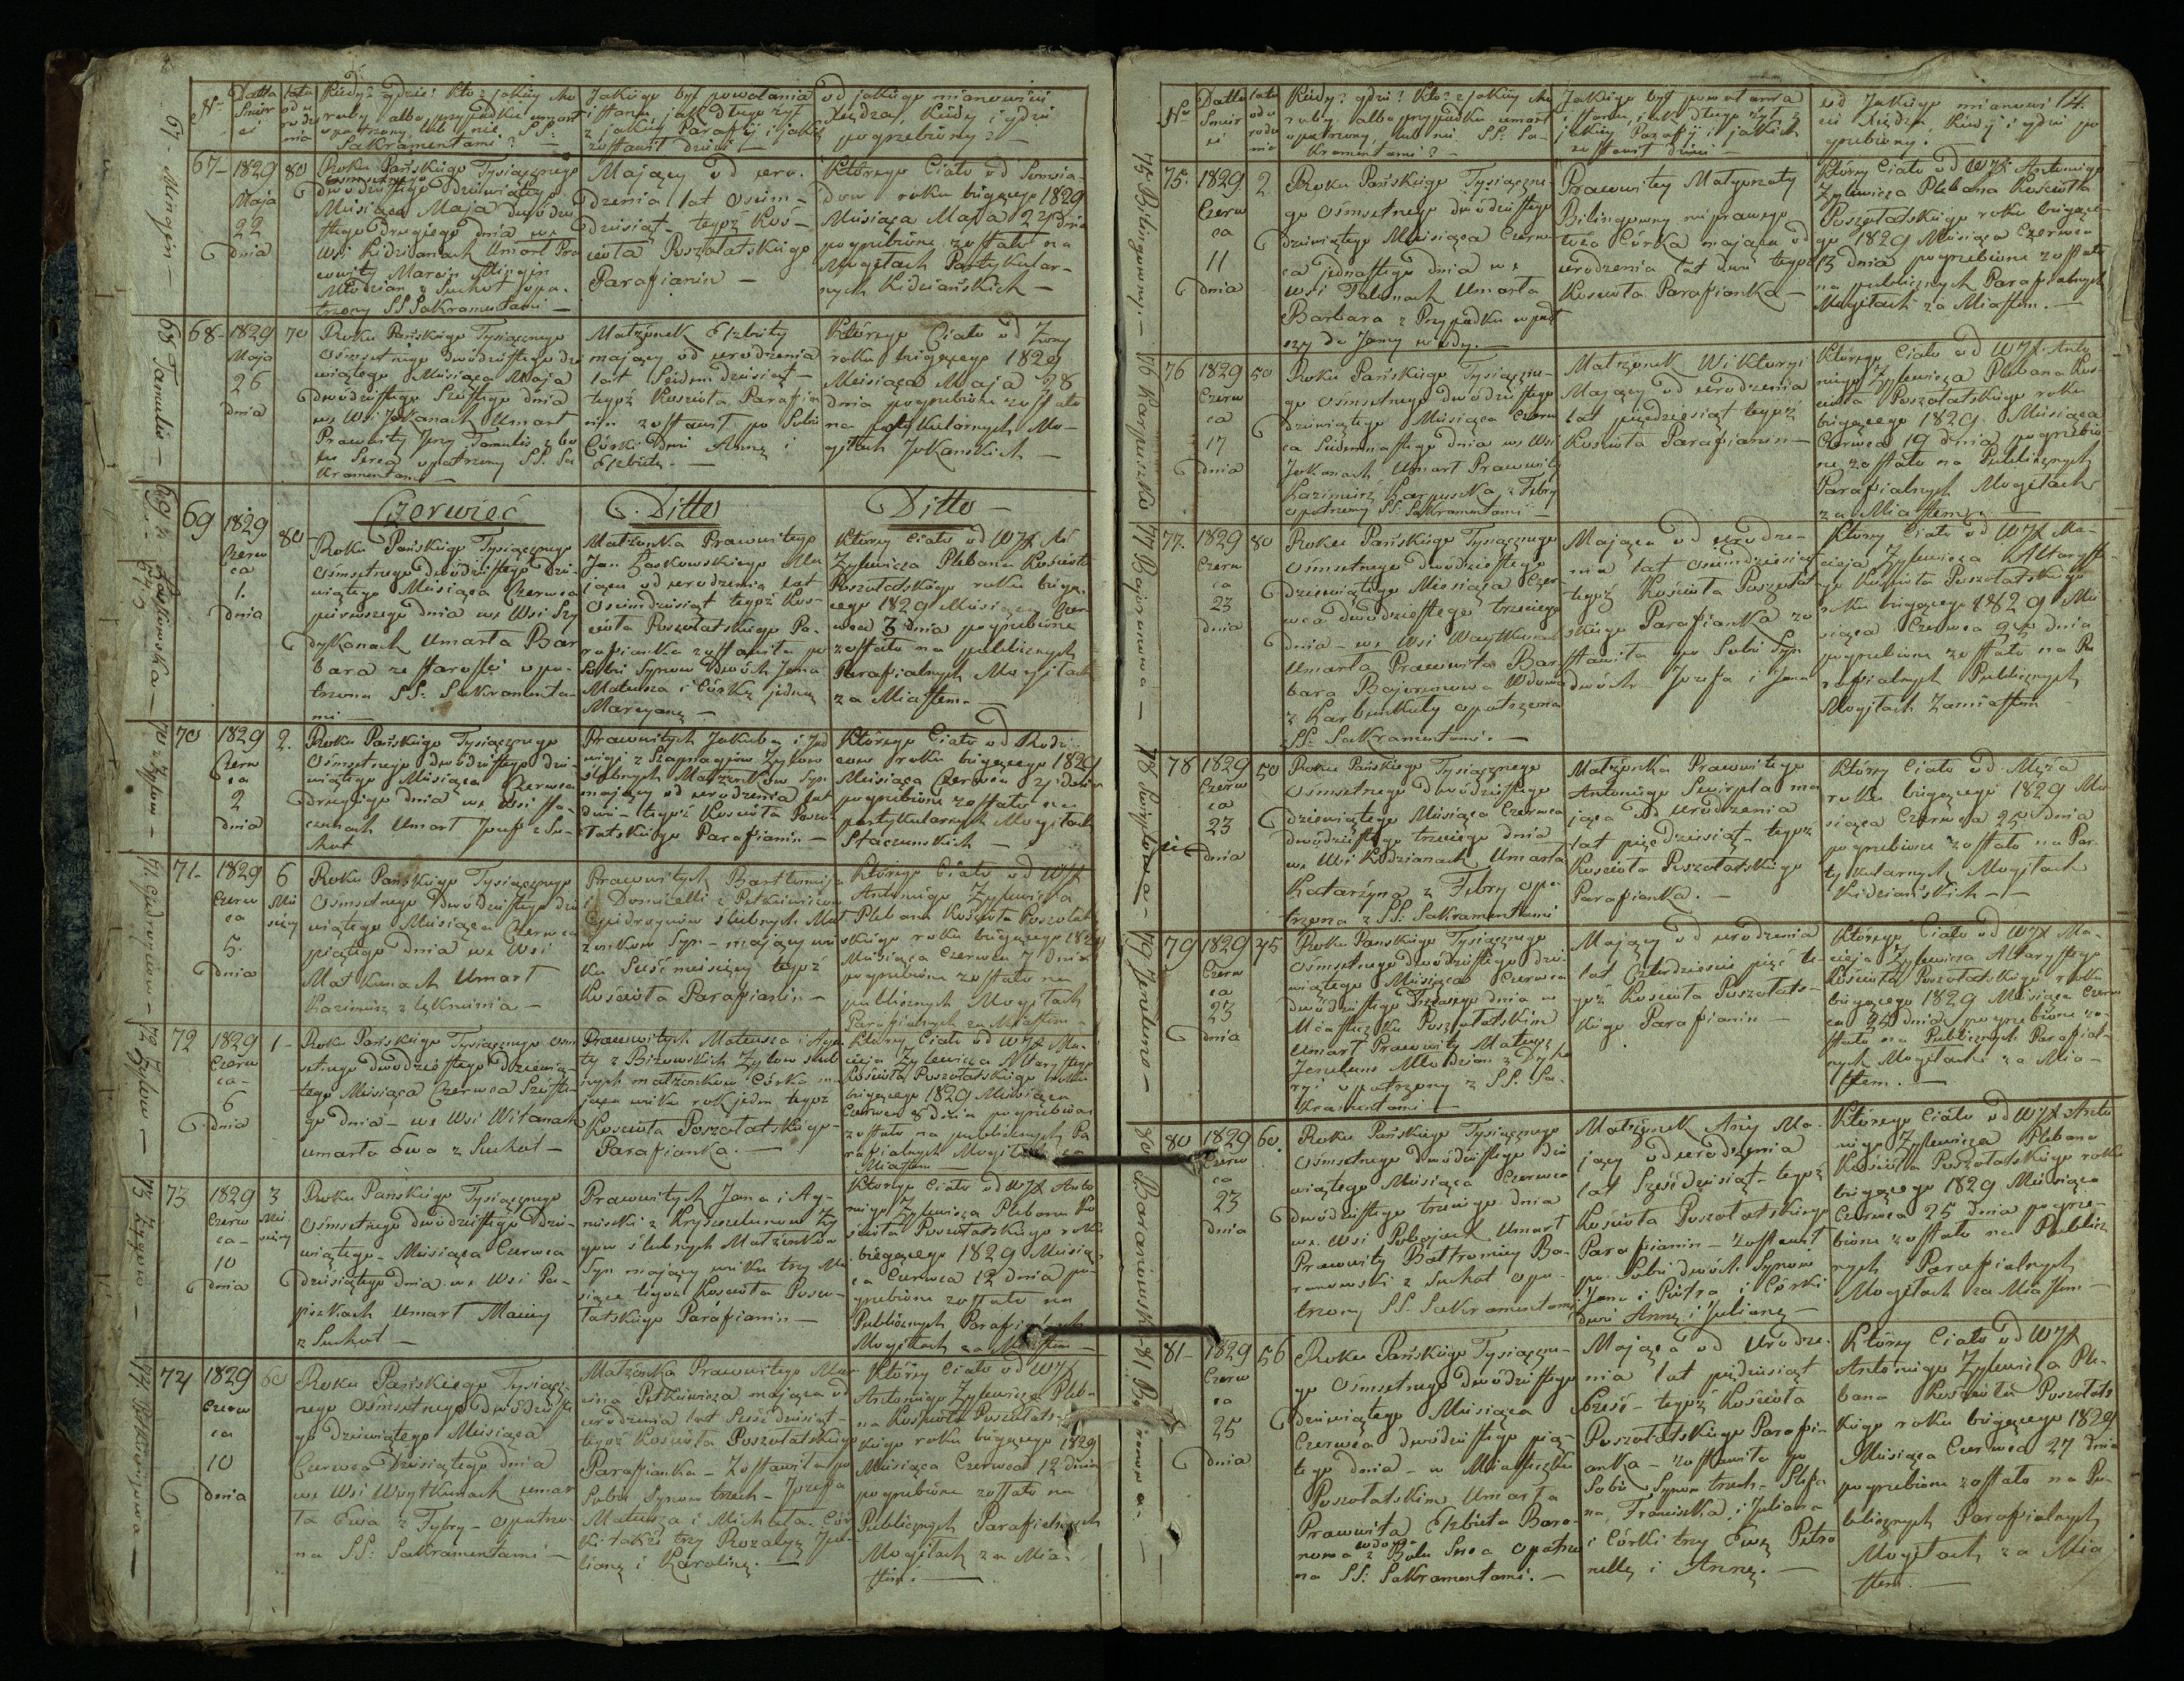 No
Datta
Smier
ci
lata
od u
rodze
nia
Kiedy? gdzie? kto? z jakiey cho
roby albo przypadku umarł
opatrzony, lub nie, SS:
Sakramentami? —
Jakiego był powołania
i stanu, jak długo żył
z jakiey Parafij i jakich
zostawił dzieci —
od jakiego mianowicie
Xiędza, kiedy i gdzie
pogrzebiony? —
67 —
1829
Maja
22
dnia
80
Roku Pańskiego Tysiącznego
osmsetnego
dwódziestego dziewiątego
Miesiąca Maja dwódzie
stego drugiego dnia we
Wsi Kidzianach Umarł Pra
wowity Marcin Mingin
Młodzian z Suchot opa-
trzony SS Sakramentami —
Maiący od uro-
dzenia lat osiem-
dziesiąt — tegoż Koś-
cioła Poszołatskiego
Parafianin —
Którego Ciało od Somsia-
dow roku biegącego 1829
Miesiąca Maja 24 dnia
pogrzebione zostało na
Mogiłach Partykular-
nych Kidziańskich —
68 —
1829
Maja
26
dnia
70
Roku Pańskiego Tysiącznego
Osmsetnego dwódziestego dzie
wiątego Miesiąca Maja
dwódziestego Szóstego dnia
we Wsi Jokanach Umarł
Prawowity Jerzy Tamulis z bo
lu Serca opatrzony SS. Sa
kramentami —
Małżonek Elżbiety
maiący od urodzenia
lat Siedemdziesiąt —
tegoż Koscioła Parafia
nin zostawił po Sobie
Córki dwie Annę i
Elżbietę. —
Którego Ciało od Żony
roku biegącego 1829
Miesiąca Maja 28
dnia pogrzebione zostało
na partykularnych Mo-
giłach Jokanskich —
69
1829
Czerw
ca
1.
dnia
80
Czerwieć
Roku Pańskiego Tysiącznego
Osmsetnego dwódziestego dzie-
wiątego Miesiąca Czerwca
pierwszego dnia we Wsi Szy
dykanach Umarła Bar
bara ze starości opa-
trzona SS: Sakramenta-
mi —
Ditto
Małżonka Prawowitego
Jan Laskowskiego Ma
jąca od urodzenia lat
Osiemdziesiąt tegoż Koś-
cioła Poszołatskiego Pa-
rafianka zostawiła po
Sobie Synow dwóch Jana
Mateusza i Córkę jedną
Maryannę —
Ditto —
Ktorey Ciało od WJX An
Żylewicza Plebana Kościoła
Poszołatskiego roku biegą-
cego 1829 Miesiąca Czer
wca 3 dnia pogrzebione
zostało na publicznych
Parafialnych Mogiłach
za Miastem.
70
1829
Czerw
ca
2
dnia
2.
Roku Pańskiego Tysiącznego
Osmsetnego dwódziestego dzie-
wiątego Miesiąca Czerwca
drugiego dnia we Wsi Sta-
czunach Umarł Jozef z Su-
chot
Prawowitych Jakuba i Jad
wigi z Szapnagiow Żyłow
ślubnych Małżonków Syn
maiący od urodzenia lat
dwa — tegoż Kościoła Poszo-
łatskiego Parafianin —
Którego Ciało od Rodzi-
cow roku biegącego 1829
Miesiąca Czerwca 4 dnia
pogrzebione zostało na
partykularnych Mogiłach
Staczunskich —
71 —
1829
Czerw
ca
5.
dnia
6
Mie
sięcy
Roku Pańskiego Tysiącznego
Osmsetnego dwódziestego dzie
wiątego Miesiąca Czerwca
piątego dnia we Wsi
Matkunach Umarł
Kazimierz z lęknienia —
Prawowitych Bartłomieja
i Domicelli z Petkiewiczow
Giedroyciow ślubnych Mał
żonkow Syn — maiący wie
ku Sześć miesięcy tegoż
Kościoła Parafianin —
Którego Ciało od WJX
Antoniego Żylewicza
Plebana Kościoła Poszołat-
skiego roku biegącego 1829
Miesiąca Czerwca 7 dnia
pogrzebione zostało na
publicznych Mogiłach
Parafialnych za Miastem —
72
1829
Czerw
ca —
6
dnia
1 —
Roku Pańskiego Tysiącznego osm
setnego dwódziestego Dziewią-
tego Miesiąca Czerwca Szóste-
go dnia — we Wsi Witanach
umarła Ewa z Suchot —
Prawowitych Mateusza i Aga
ty z Biżowskich Żyłow ślub
nych małżonków Córka ma
jąca wieku rok jeden tegoż
Kościoła Poszołatskiego —
Parafianka. —
Którey Ciało od WJX Ma-
cieja Żylewicza Altarystego
Kościoła Poszołatskiego roku
biegącego 1829 Miesiąca
Czerwca 8 dnia pogrzebione
zostało na publicznych Pa
rafialnych Mogiłach za
Miastem —
73
1829
Czerw
ca —
10
dnia
3
Mie
sięcy
Roku Pańskiego Tysiącznego
Osmsetnego dwódziestego dzie-
wiątego — Miesiąca Czerwca
dziesiątego dnia we Wsi Pa-
piszkach Umarł Maciey
z Suchot —
Prawowitych Jana i Ag-
nieszki z Kryszczelunow Ży
gow ślubnych Małżonków
Syn maiący wieku trzy Mie
siące tegoż Kościoła Poszo-
łatskiego Parafianin —
Ktorego Ciało od WJX Anto
niego Żylewicza Plebana Ko
ścioła Poszołatskiego roku
biegącego 1829 Miesią-
ca Czerwca 12 dnia po-
grzebione zostało na
Publicznych Parafialnych
Mogiłach za Miastem —
74
1829
Czerw
ca
10
dnia
60
Roku Pańskiego Tysiącz-
nego Osmsetnego dwódzieste
go dziewiątego Miesiąca
Czerwca dziesiątego dnia
we Wsi Woytkunach umar
ła Ewa z Fybry — opatrzo-
na SS: Sakramentami —
Małżonka Prawowitego Mar
cina Petkiewicza maiąca od
urodzenia lat Sześćdziesiąt —
tegoż Kościoła Poszołatskiego
Parafianka — Zostawiła po
Sobie Synow trzech — Jozefa
Mateusza i Michała. Cór
ki także trzy Rozalyą Ju-
lianę i Karolinę. —
Którey Ciało od WJX
Antoniego Żylewicza Pleba-
na Kościoła Poszołats-
kiego roku biegącego 1829
Miesiąca Czerwca 12 dnia
pogrzebione zostało na
Publicznych Parafialnych
Mogiłach za Mia-
stem. —
67 — Mingin — 68 Tamulis — 69 Łaskowska — 70 Żyłow — 71 Giedroyciow — 72 Żyłow — 73 Żygow — 74 Petkiewiczowa —
No
Datta
Smier
ci
lata
od u
rodze
nia
Kiedy? gdzie? Kto? z jakiey cho
roby albo przypadku umarł
opatrzony, lub nie SS: Sa-
kramentami? —
Jakiego był powołania
i stanu, jak długo żył z
jakiey Parafij i jakich
zostawił dzieci —
od Jakiego mianowi 14.
cie Xiędza, kiedy i gdzie po
grzebiony. —
75.
1829
Czerw
ca
11
dnia
2.
Roku Pańskiego Tysiączne-
go Ósmsetnego dwódziestego
dziewiątego Miesiąca Czerw-
ca jednastego dnia we
Wsi Talunach Umarła
Barbara z Przypadku wpad
szy do Jamy wody. —
Prawowitey Małgorzaty
Bilingowny nieprawego
łoża Córka maiąca od
urodzenia lat dwie tegoż
Kościoła Parafianka —
Którey Ciało od WJX Antoniego
Żylewicza Plebana Kościoła
Poszołatskiego roku biegące-
go 1829 Miesiąca Czerwca
13 dnia pogrzebione zostało
na publicznych Parafialnych
Mogiłach za Miastem. —
76
1829
Czerw
ca
17
dnia
50
Roku Pańskiego Tysiączne-
go Osmsetnego dwódziestego
dziewiątego Miesiąca Czerw
ca Siedemnastego dnia we Wsi
Jokanach Umarł Prawowity
Kazimierz Karpuszka z Febry
opatrzony SS: Sakramentami —
Małżonek Wiktoryi
Maiący od urodzenia
lat pięćdziesiąt tegoż
Kościoła Parafianin —
Którego Ciało od WJX Anto
niego Żylewicza Plebana Koś-
cioła Poszołatskiego roku
biegącego 1829. Miesiąca
Czerwca 19 dnia pogrzebio-
ne zostało na Publicznych
Parafialnych Mogiłach
za Miastem. —
77.
1829
Czerw
ca
23
dnia
80
Roku Pańskiego Tysiącznego
Osmsetnego dwódziestego
dziewiątego Miesiąca Czer-
wca dwódziestego trzeciego
dnia — we Wsi Woytkunach
Umarła Prawowita Bar
bara Bojorunowa Wdowa
z Karbunkuły opatrzona
SS: Sakramentami. —
Maiąca od urodze-
nia lat osiemdziesiąt
tegoż Kościoła Poszołat
skiego Parafianka zo
stawiła po Sobie Syn
dwóch Jozefa i Jana
Ktorey Ciało od WJX Ma-
cieja Żylewicza Altaryste-
go Kościoła Poszołatskiego
roku biegącego 1829 Mie
siąca Czerwca 25 dnia
pogrzebione zostało na Pa
rafialnych Publicznych
Mogiłach Zamiastem
78
1829
Czerw
ca
23
dnia
50
Roku Pańskiego Tysiącznego
Osmsetnego dwódziestego
dziewiątego Miesiąca Czerwca
dwódziestego trzeciego dnia
we Wsi Kidzianach Umarła
Katarzyna z Febry opa-
trzona z SS: Sakramentami
Małżonka Prawowitego
Antoniego Swirpla ma
jąca od urodzenia
lat pięćdziesiąt — tegoż
Kościoła Poszołatskiego
Parafianka. —
Którey Ciało od Męża
roku biegącego 1829 Mie
siąca Czerwca 25 dnia
pogrzebione zostało na Par-
tykularnych Mogiłach
Kidziańskich —
79
1829
Czerw
ca
23
dnia
45
Roku Panskiego Tysiącznego
Osmsetnego dwódziestego dzie-
wiątego Miesiąca Czerwca
dwódziestego Trzeciego dnia w
Miasteczku Poszołatskim
Umarł Prawowity Mateusz
Jendunas Młodzian z Dyho
ryi opatrzony z SS. Sa-
kramentami —
Maiący od urodzenia
lat czterdzieście pięć te-
goż Kościoła Poszołats-
kiego Parafianin —
Którego Ciało od WJX Ma-
cieja Żylewicza Altarystego
Kościoła Poszołatskiego roku
biegącego 1829 Miesiąca Czerw
ca 25 dnia pogrzebione zo-
stało na Publicznych Parafial-
nych Mogiłach za Mia-
stem. —
80
1829
Czerw
ca
23
dnia
60.
Roku Pańskiego Tysiącznego
Osmsetnego dwódziestego dzie
wiątego Miesiąca Czerwca
dwódziestego trzeciego dnia
we Wsi Pobojach Umarł
Prawowity Bałtromiey Ba-
ranowski z Suchot opa-
trzony SS. Sakramentami
Małżonek Aniy Ma-
jący od urodzenia
lat Sześćdziesiąt — tegoż
Kościoła Poszołatskiego
Parafianin — Zostawił
po Sobie dwóch Synow
Jana i Piotra i Córki
dwie Annę i Julianę —
Którego Ciało od WJX Anto
niego Żylewicza Plebana
Kościoła Poszołatskiego roku
biegącego 1829 Miesiąca
Czerwca 25 dnia pogrze-
bione zostało na Publicz
nych Parafialnych
Mogiłach za Miastem —
81 —
1829
Czerw
ca
25
dnia
56
Roku Pańskiego Tysiączne-
go Osmsetnego dwódziestego
dziewiątego Miesiąca
Czerwca dwódziestego pią-
tego dnia — w Miasteczku
Poszołatskim Umarła
Prawowita Elżbieta Baro-
nowa wdowa z Bolu Serca opatrzo
na SS: Sakramentami. —
Maiąca od urodze-
nia lat pięćdziesiąt
Sześć — tegoż Kościoła
Poszołatskiego Parafi-
anka — zostawiła po
Sobie Synow trzech — Stefa
na, Franciszka, i Juliana
i Córki trzy Ewę Petro
nellę i Annę. —
Którey Ciało od WJX
Antoniego Żylewicza Ple-
bana Kościoła Poszołats
kiego roku biegącego 1829
Miesiąca Czerwca 27 dnia
pogrzebione zostało na Pu-
blicznych Parafialnych
Mogiłach za Mia
stem. —
75 Bilingowny. — 76 Karpuszko 77 Bojorunowa — 78 Swirplowa — 79 Jenduno — 80 Baranowski — 81